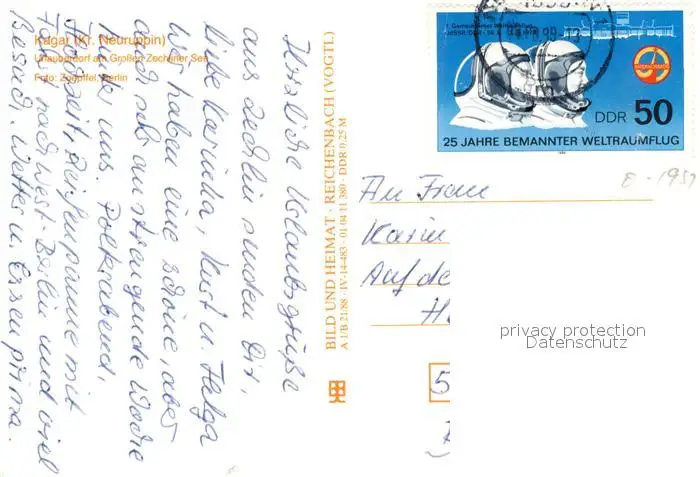 Kagar (Kr. Neuruppin)
Urlauberdorf am Großen Zechliner See
Foto: Zugpffel, Berlin
Herzliche Urlaubsgrüße
aus Zechlin senden Dir,
liebe Karin, Kurt u. Helga
Wir haben eine schöne, aber
auch sehr anstrengende Woche
hinter uns. Polterabend,
Hochzeit, Reifenpanne mit
nach West-Berlin und viel
Besuch. Wetter u. Essen prima.
BILD UND HEIMAT · REICHENBACH (VOGTL)
A 1/B 21/88 · IV-14-483 · 01 04 11 380 · DDR 0,25 M
1. Gemeinsamer Weltraumflug
UdSSR/DDR
INTERKOSMOS
DDR 50
25 JAHRE BEMANNTER WELTRAUMFLUG
1986
An Frau
Karin
Auf de
H
5
privacy protection
Datenschutz